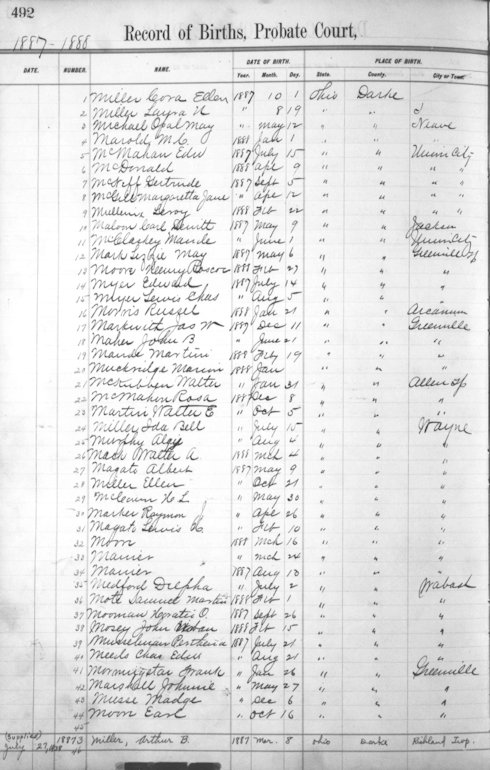 492
1887-1888
Record of Births, Probate Court,
DATE. NUMBER. NAME. DATE OF BIRTH. PLACE OF BIRTH.
Year. Month. Day. State. County. City or Town.
1 Miller Cora Ellen 1887 10 1 Ohio Darke
2 Miller 8 19 " "
3 Michael Opal May " May 12 " " Neave
4 Marold M.C. 1888 Jan 1 " "
5 McMahan Edw 1887 July 15 " " Union City
6 McDonald 1888 Apr 9 " " " "
7 McNeff Gertrude 1887 Sept 5 " " " "
8 McGill Margaretta Jane " Apr 12 " " " "
9 Mullenix Leroy 1888 Feb 22 " " " "
10 Carl Dewitt 1887 May 9 " " Jackson
11 Maude " June 1 " " Union City
12 Mark Lizzie May 1887 May 6 " " Greenville Tp
13 Moore Henry Roscoe 1888 Feb 27 " " "
14 Myer Edward 1887 July 14 " " "
15 Myer Lewis Chas " Aug 5 " " "
16 Morris Russel 1888 Jan 21 " " Arcanum
17 Markwith Jas W 1887 Dec 11 " " Greenville
18 Maher John B " June 21 " " "
19 Maude Martini 1888 Feb 19 " " "
20 Muckridge Marion 1888 Jan " " "
21 McKibben Walter " Jan 31 " " Allen Tp
22 McMahen Rosa Dec 8 " " "
23 Martin Walter E " Oct 5 " " "
24 Miller Ida Bell " July 15 " " Wayne
25 Murphy " Aug 4 " " "
26 Mach Walter A 1888 Mch 4 " " "
27 Magate Albert 1887 May 9 " " "
28 Miller Ellen " Oct 21 " " "
29 " May 30 " " "
30 Marker Raymon " Apr 26 " " "
31 Magate Lewis " Feb 10 " " "
32 Moon 1888 Mch 16 " " "
33 Manier " Mch 24 " " "
34 Manier 1887 Aug 18 " " "
35 Medford Drepha " July 2 " " Wabash
36 Mote Samuel Martin 1888 Feb 1 " " "
37 Mooman Horatio O. 1887 Sept 26 " " "
38 Mosey John 1888 Feb 15 " " "
39 Musselman 1887 July 21 " " "
40 Meeds Chas Edw " Aug 21 " " "
41 Morningstar Frank " Jan 26 " " Greenville
42 Marshall Johnnie " May 27 " " "
43 Muse Madge " Dec 6 " " "
44 Moon Earl " Oct 16 " " "
45
(Supplied) July 27, 18873 Miller, Arthur B. 1887 Mar. 8 Ohio Darke Richland Twp.
46